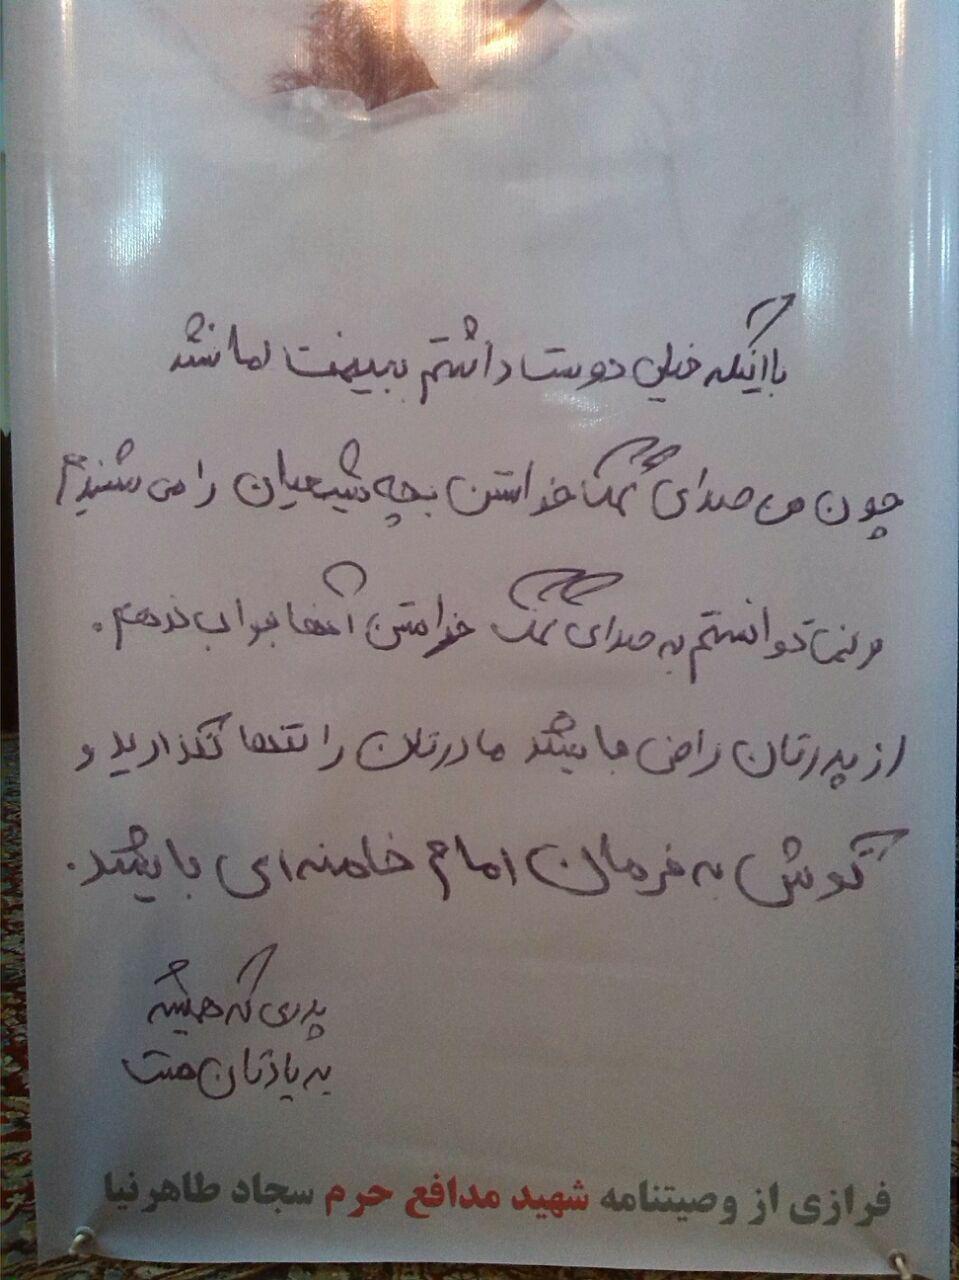 بااینکه خیلی دوست داشتم ببینمت اما نشد
چون من صدای کمک خواستن بچه شیعیان را می شنیدم
و نمی توانستم به صدای کمک خواستن آنها جواب ندهم.
از پدرتان راضی باشید مادرتان را تنها نگذارید و
گوش به فرمان امام خامنه ای باشید.
پدری که همیشه
به یادتان هست
فرازی از وصیتنامه شهید مدافع حرم سجاد طاهرنیا